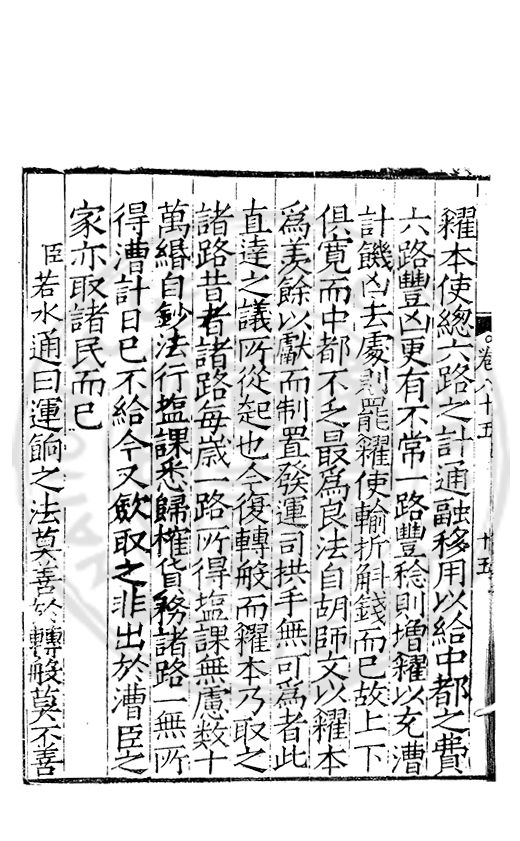 卷八十五
十五
糴本使總六路之計通融移用以給中都之費
六路豐凶更有不常一路豐稔則增糴以充漕
計饑凶去處則罷糴使輸折斛錢而已故上下
俱寬而中都不乏最為良法自胡師文以糴本
為羨餘以獻而制置發運司拱手無可為者此
直達之議所從起也今復轉般而糴本乃取之
諸路昔者諸路每歲一路所得塩課無慮數十
萬緡自鈔法行塩課悉歸榷貨務諸路一無所
得漕計日已不給今又歛取之非出於漕臣之
家亦取諸民而已
臣若水通曰運餉之法莫善於轉般莫不善